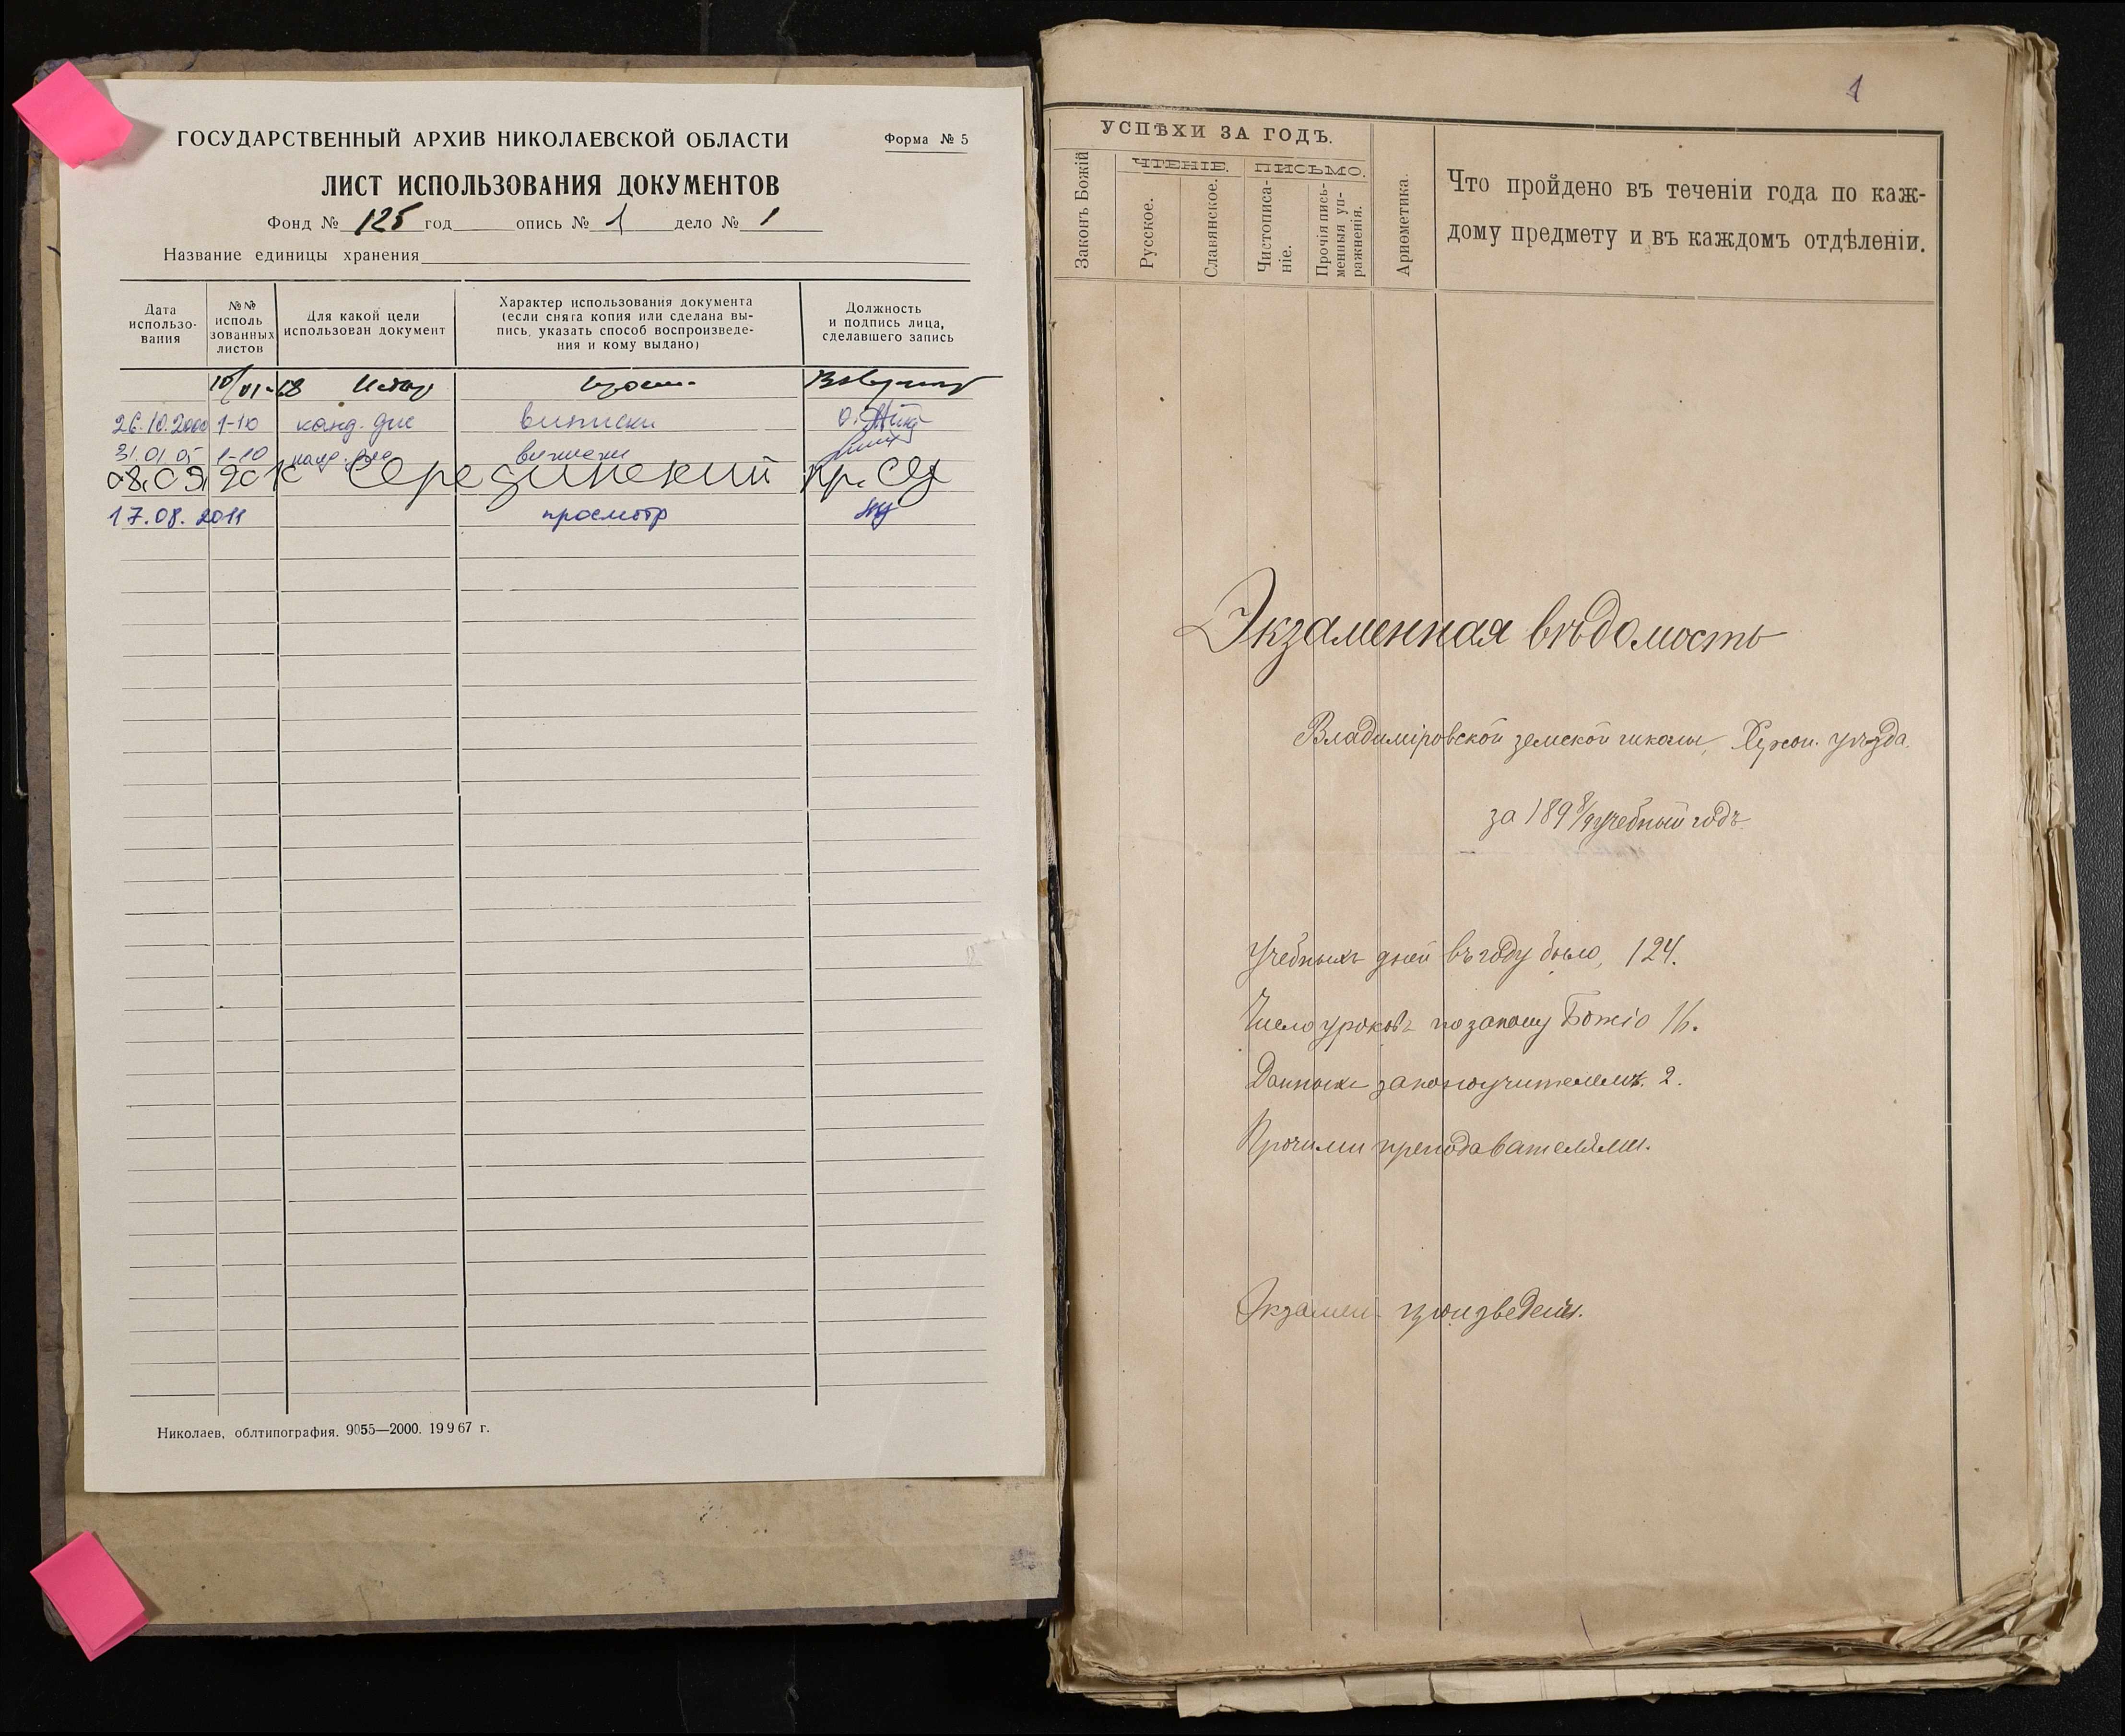 ГОСУДАРСТВЕННЫЙ АРХИВ НИКОЛАЕВСКОЙ ОБЛАСТИ
Форма № 5
ЛИСТ ИСПОЛЬЗОВАНИЯ ДОКУМЕНТОВ
Фонд № 125 год опись № 1 дело № 1
Название единицы хранения
Дата использо-вания
№№ исполь зованных листов
Для какой цели использован документ
Характер использования документа (если снята копия или сделана вы-пись, указать способ воспроизведе-ния и кому выдано)
Должность и подпись лица, сделавшего запись
26.10.2000 1-10 канд. дис виписки
31.01.05 1-10 канд. дис виписки
Серединский
17.08.2011 просмотр
Николаев, облтипография. 9055—2000. 1967 г.
1
УСПѢХИ ЗА ГОДЪ.
Законъ Божій
ЧТЕНІЕ.
Русское.
Славянское.
ПИСЬМО.
Чистописа-ніе.
Прочія пись-менныя уп-ражненія.
Ариѳметика.
Что пройдено въ теченіи года по каж-
дому предмету и въ каждомъ отдѣленіи.
Экзаменная вѣдомость
Владиміровской земской школы, Херсон. уѣзда.
за 1898/9 учебный годъ.
Учебныхъ дней въ году было, 124.
Число уроковъ по закону Божію 16.
Данныхъ законоучителемъ. 2.
Прочими преподавателями.
Экзамен произведенъ.